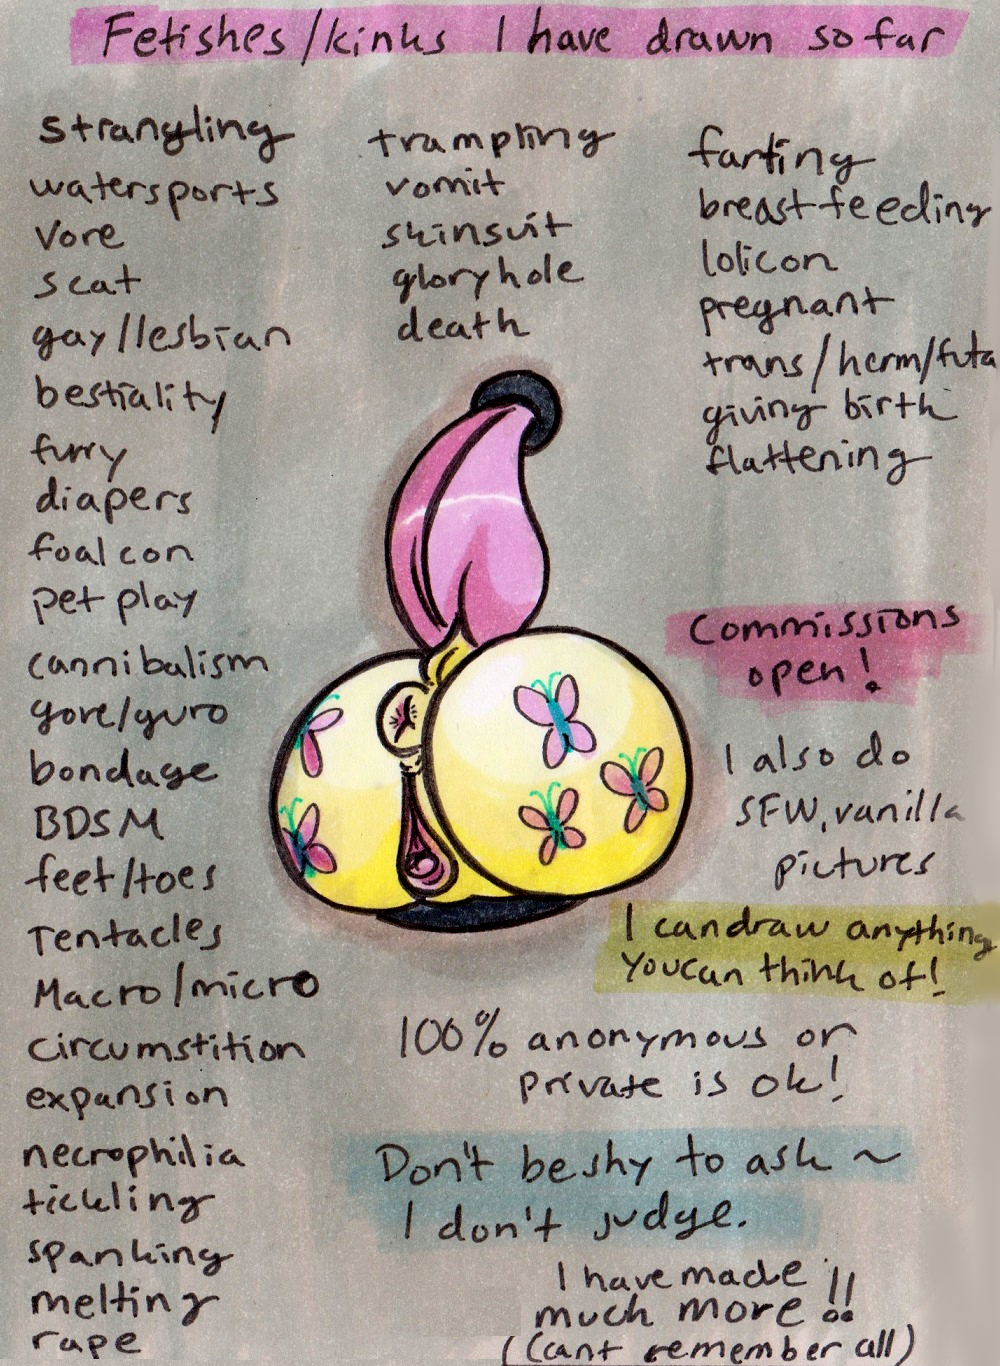 Fetishes/kinks I have drawn so far
strangling
watersports
Vore
scat
gay/lesbian
bestiality
furry
diapers
foalcon
pet play
cannibalism
gore/guro
bondage
BDSM
feet/toes
Tentacles
Macro/micro
circumstition
expansion
necrophilia
tickling
spanking
melting
rape
trampling
vomit
skinsuit
gloryhole
death
farting
breastfeeding
lolicon
pregnant
trans/herm/futa
giving birth
flattening
Commissions
open!
I also do
SFW, vanilla
pictures
I can draw anything
you can think of!
100% anonymous or
private is ok!
Don't be shy to ask ~
I don't judge.
I have made
much more!!
(cant remember all)